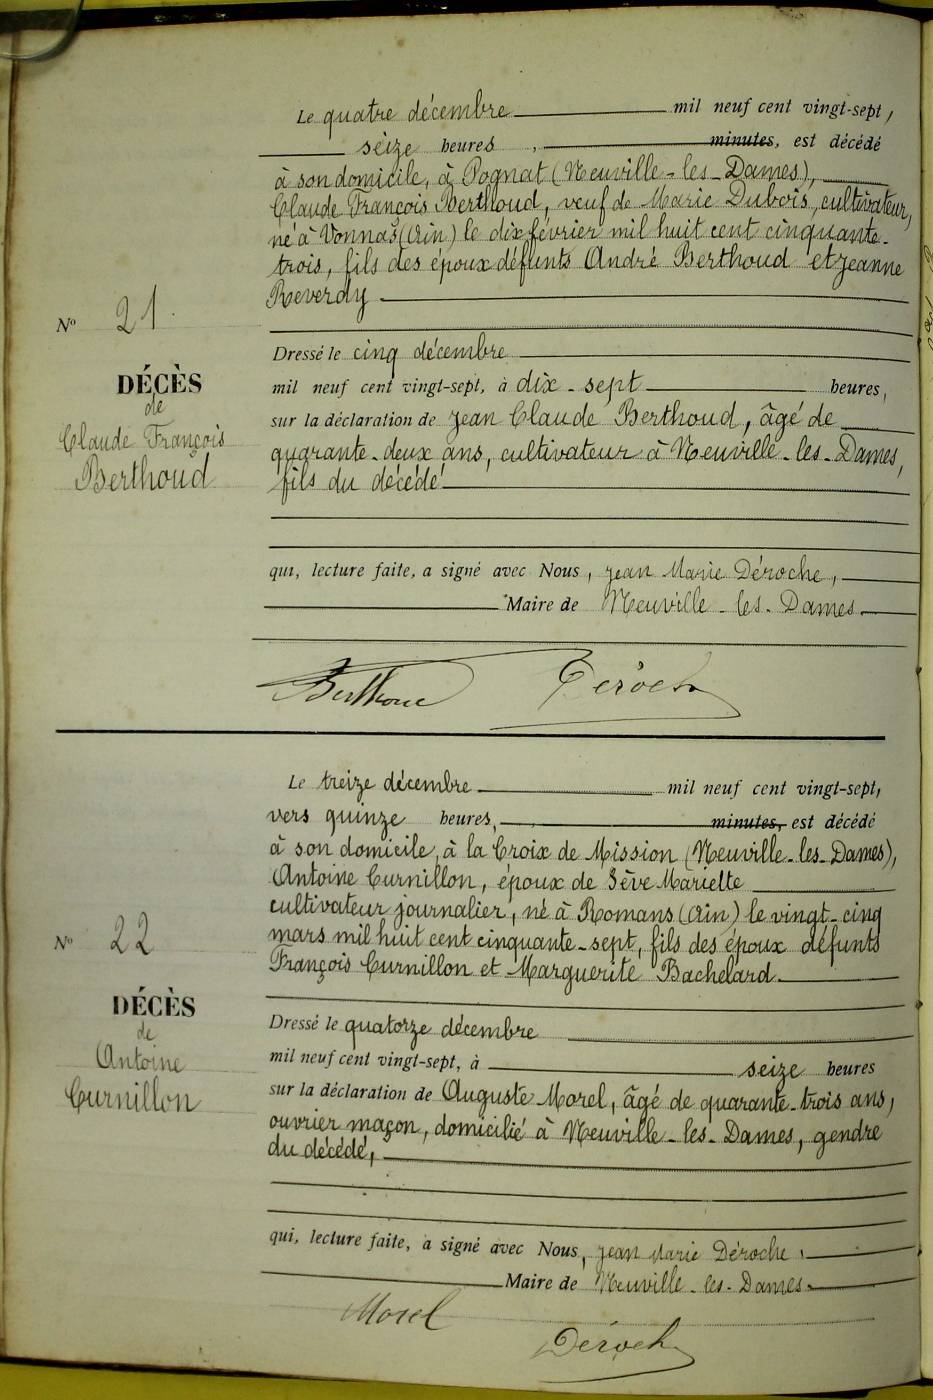 Le quatre décembre mil neuf cent vingt-sept,
seize heures, minutes, est décédé
à son domicile, à Pognat (Neuville-les-Dames),
Claude François Berthoud, veuf de Marie Dubois, cultivateur,
né à Vonnas (Ain) le dix février mil huit cent cinquante-
trois, fils des époux défunts André Berthoud et Jeanne
Reverdy
Nº 21
Dressé le cinq décembre
mil neuf cent vingt-sept, à dix-sept heures,
DÉCÈS
de
Claude François
Berthoud
sur la déclaration de Jean Claude Berthoud, âgé de
quarante-deux ans, cultivateur à Neuville-les-Dames,
fils du décédé
qui, lecture faite, a signé avec Nous, Jean Marie Déroche,
Maire de Neuville-les-Dames
Berthoud Déroche
Le treize décembre mil neuf cent vingt-sept,
vers quinze heures, minutes, est décédé
à son domicile, à la Croix de Mission (Neuville-les-Dames),
Antoine Curnillon, époux de Sève Mariette
cultivateur journalier, né à Romans (Ain) le vingt-cinq
mars mil huit cent cinquante-sept, fils des époux défunts
François Curnillon et Marguerite Bachelard
Nº 22
DÉCÈS
de
Antoine
Curnillon
Dressé le quatorze décembre
mil neuf cent vingt-sept, à seize heures
sur la déclaration de Auguste Morel, âgé de quarante-trois ans,
ouvrier maçon, domicilié à Neuville-les-Dames, gendre
du décédé,
qui, lecture faite, a signé avec Nous, Jean Marie Déroche,
Maire de Neuville-les-Dames
Morel
Déroche